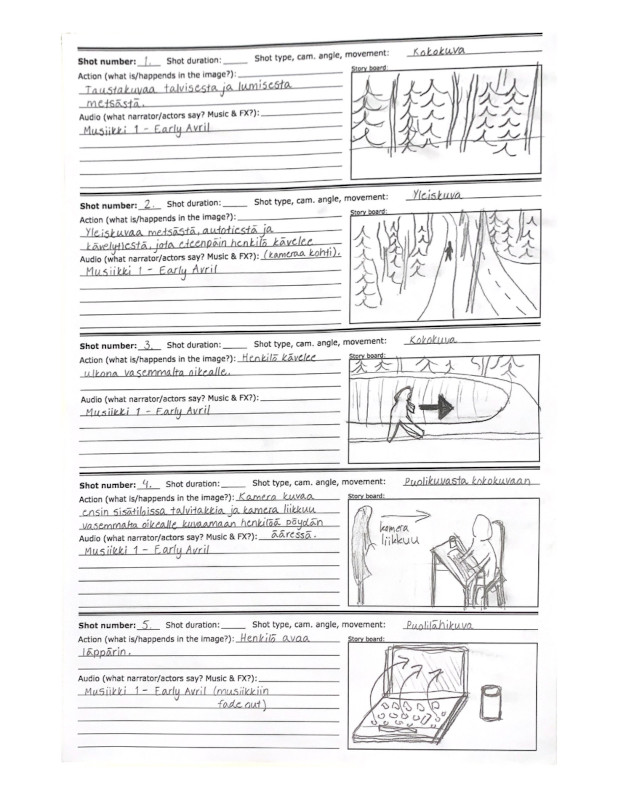 Shot number: 1. Shot duration: Shot type, cam. angle, movement: Kokokuva
Action (what is/happends in the image?): Story board:
Taustakuvaa talvisesta ja lumisesta
metsästä.
Audio (what narrator/actors say? Music & FX?):
Musiikki 1 - Early Avril
Shot number: 2. Shot duration: Shot type, cam. angle, movement: Yleiskuva
Action (what is/happends in the image?): Story board:
Yleiskuvaa metsästä, autotiestä ja
kävelytiestä, jota eteenpäin henkilö kävelee
Audio (what narrator/actors say? Music & FX?): (kameraa kohti).
Musiikki 1 - Early Avril
Shot number: 3. Shot duration: Shot type, cam. angle, movement: Kokokuva
Action (what is/happends in the image?): Henkilö kävelee Story board:
ulkona vasemmalta oikealle.
Audio (what narrator/actors say? Music & FX?):
Musiikki 1 - Early Avril
Shot number: 4. Shot duration: Shot type, cam. angle, movement: Puolikuvasta kokokuvaan
Action (what is/happends in the image?): Kamera kuvaa Story board:
ensin sisätiloissa talvitakkia ja kamera liikkuu
vasemmalta oikealle kuvaamaan henkilöä pöydän
Audio (what narrator/actors say? Music & FX?): ääressä.
Musiikki 1 - Early Avril
kamera
liikkuu
Shot number: 5. Shot duration: Shot type, cam. angle, movement: Puolilähikuva
Action (what is/happends in the image?): Henkilö avaa Story board:
läppärin.
Audio (what narrator/actors say? Music & FX?):
Musiikki 1 - Early Avril (musiikkiin
fade out)